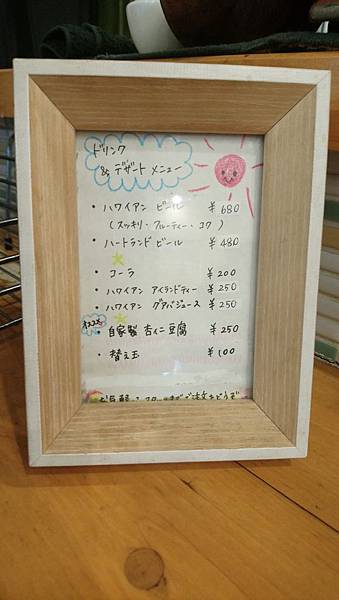 ドリンク
& デザート メニュー
・ハワイアン ビール ¥680
(スッキリ・フルーティー・コク)
・ハートランド ビール ¥480
・コーラ ¥200
・ハワイアン アイランドティー ¥250
・ハワイアン グアバジュース ¥250
オススメ ・自家製 杏仁豆腐 ¥250
・替え玉 ¥100
ご注文どうぞ